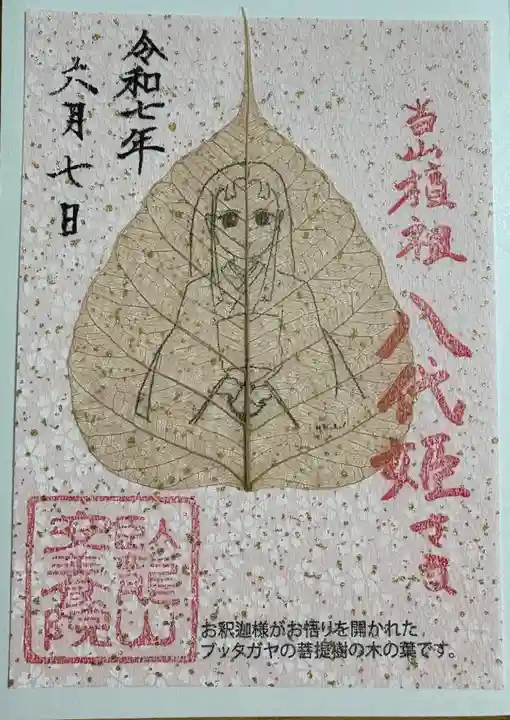 当山植祖
八代姫さま
令和七年
六月七日
お釈迦様がお悟りを開かれた
ブッタガヤの菩提樹の木の葉です。